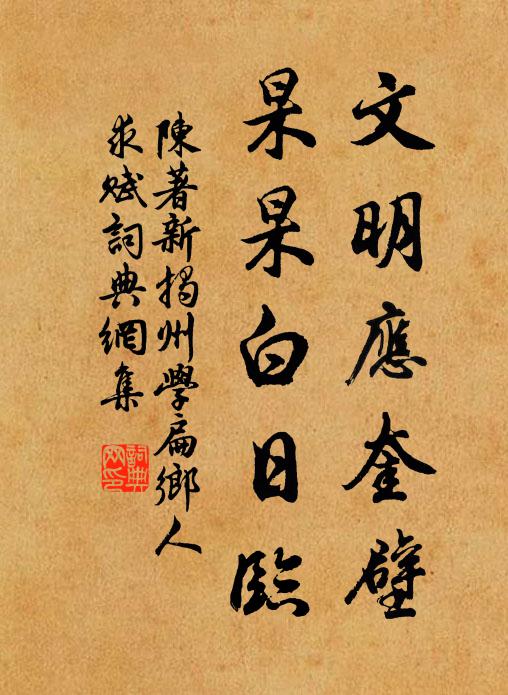 文明應奎壁
杲杲白日臨
陳著新揭州學扁鄉人
求賦詞典網集
詞典网印